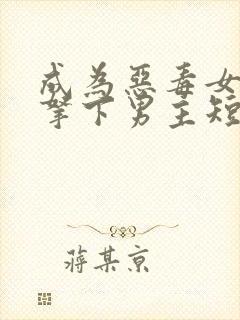 成为恶毒女
拏下男主短
蒋某京